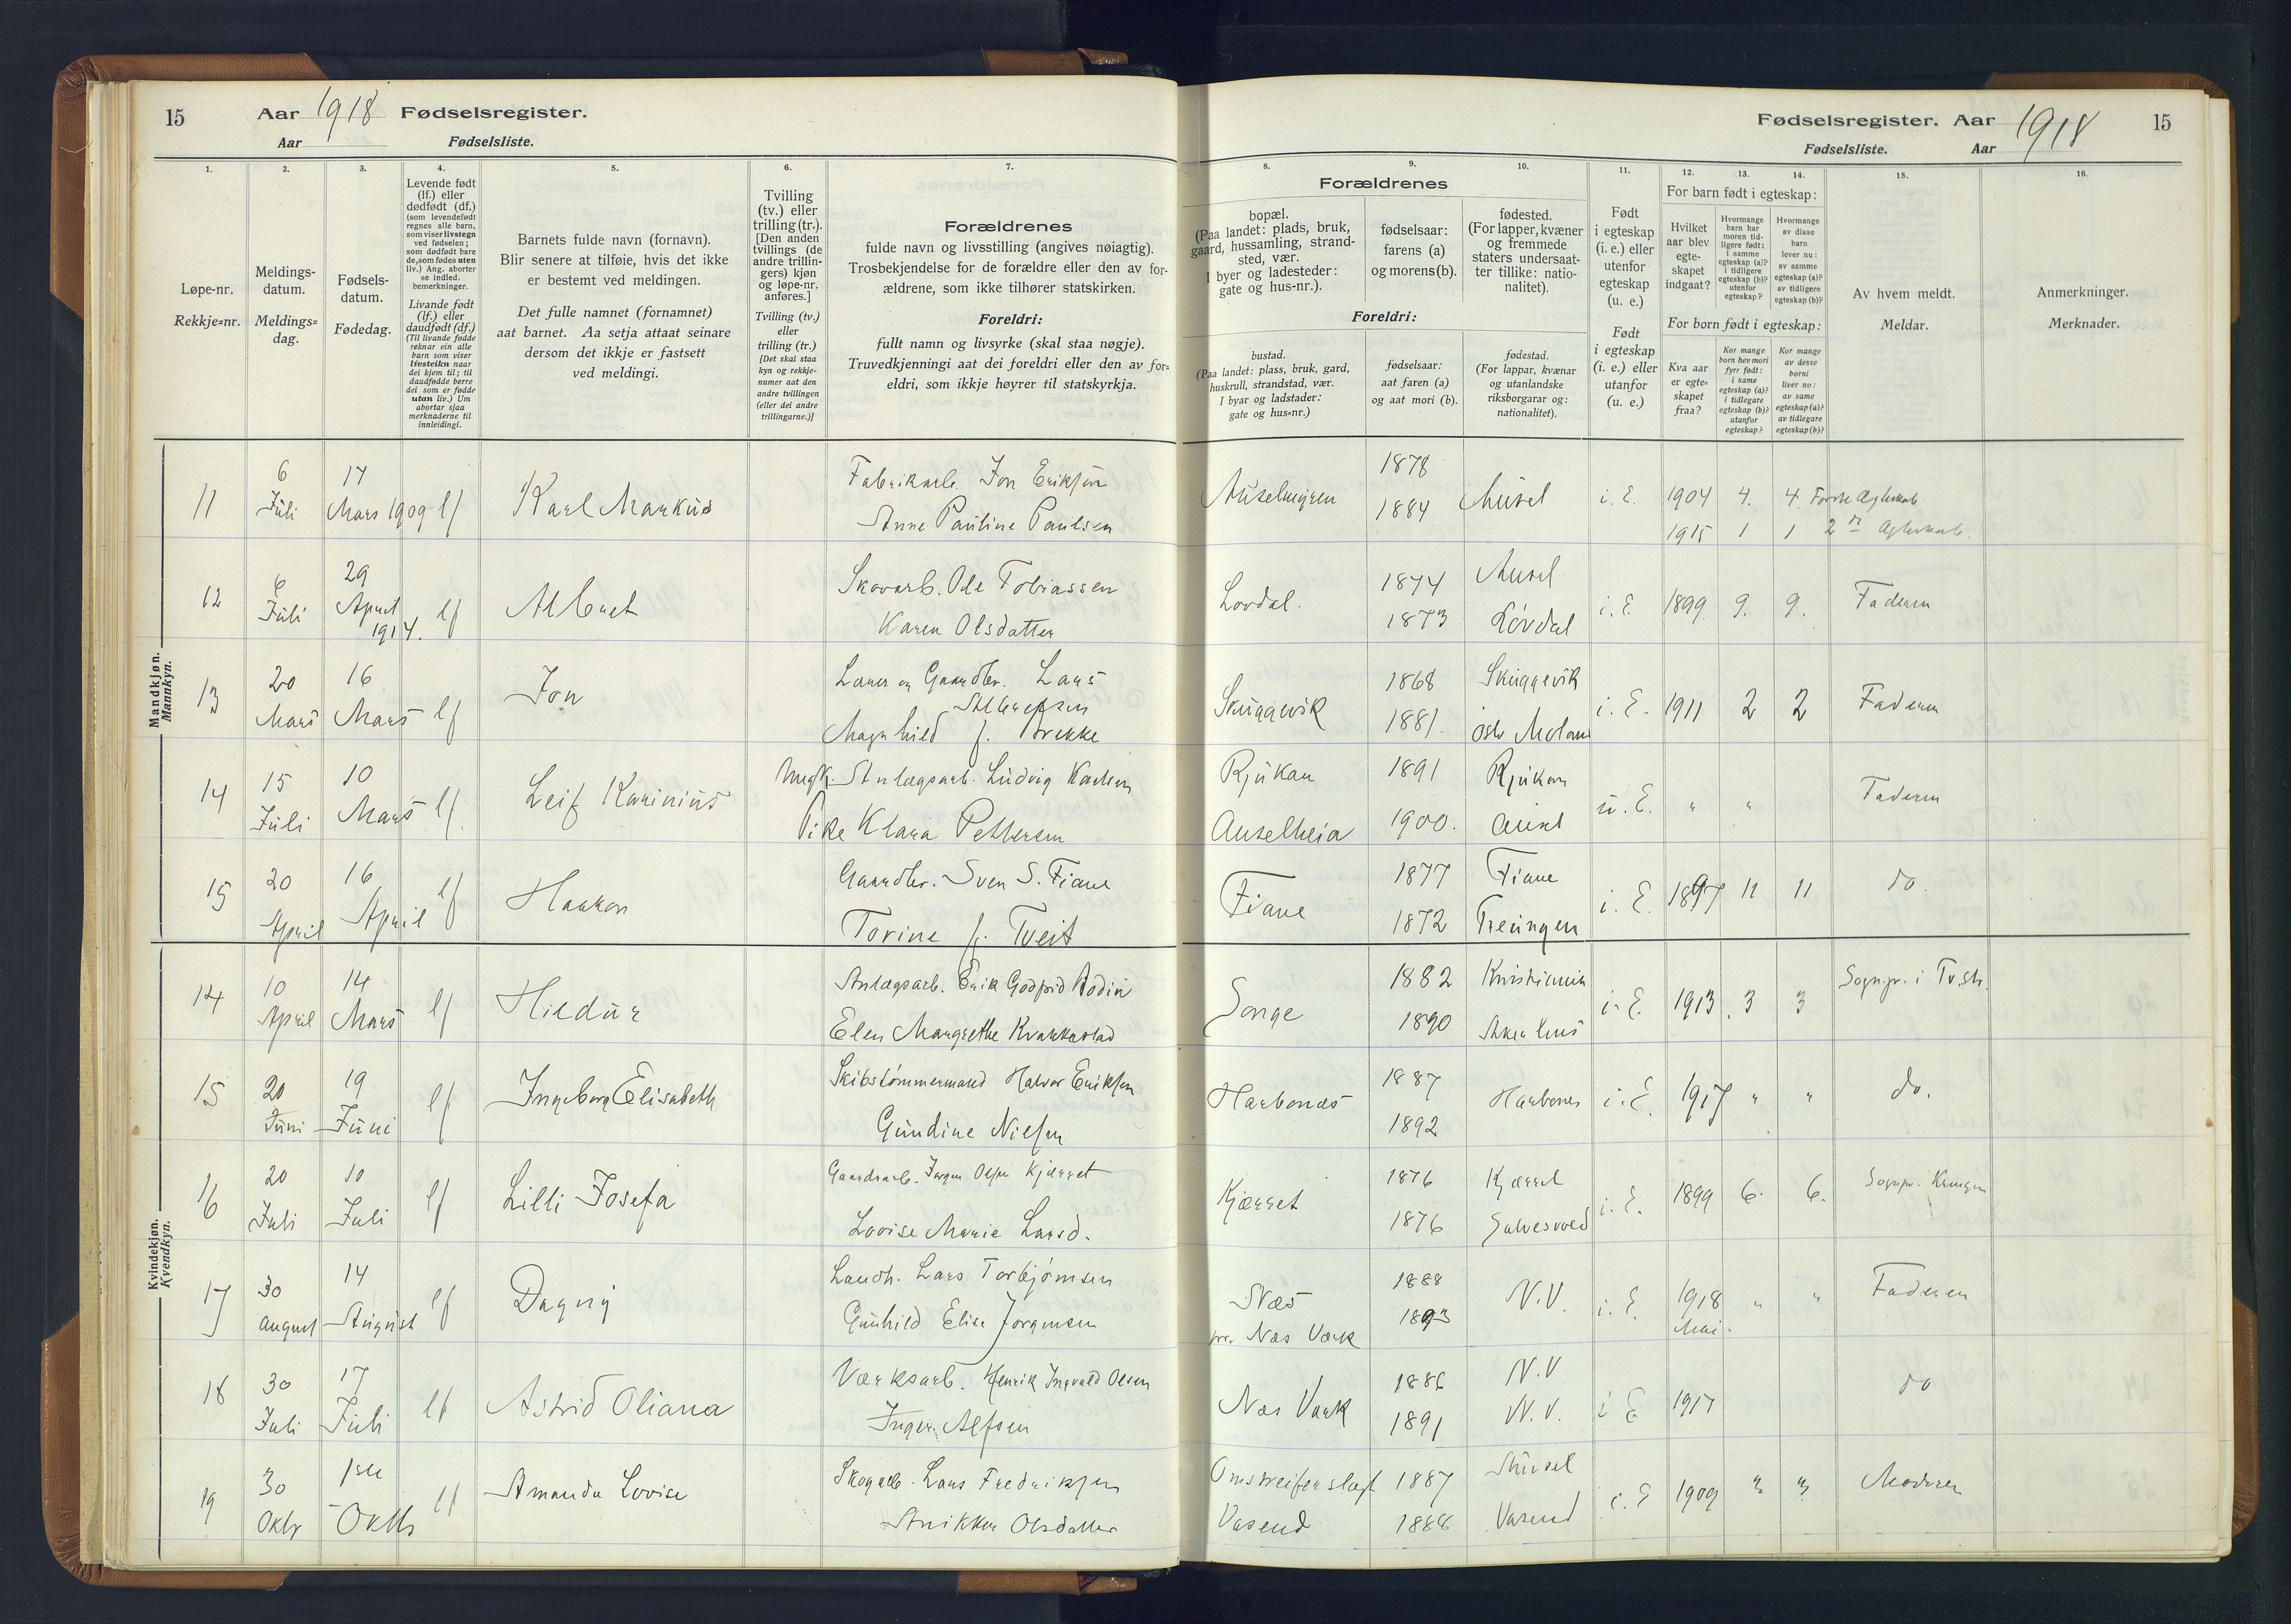 15 Aar 1918 Fødselsregister.
Aar Fødselsliste.
Fødselsregister. Aar 1918 15
Fødselsliste. Aar
1. 2. 3. 4. 5. 6. 7.
Løpe-nr.
Rekkje=nr.
Meldings-
datum.
Meldings=
dag.
Fødsels-
datum.
Fødedag.
Levende født
(lf.) eller
dødfødt (df.)
(som levendefødt
regnes alle barn,
som viser livstegn
ved fødselen;
som dødfødt bare
de, som fødes uten
liv.) Ang. aborter
se indled.
bemerkninger.
Livande født
(lf.) eller
daudfødt (df.)
(Til livande fødde
reknar ein alle
barn som viser
livsteikn naar
dei kjem til; til
daudfødde berre
dei som er fødde
utan liv.) Um
abortar sjaa
merknaderne til
innleidingi.
Barnets fulde navn (fornavn).
Blir senere at tilføie, hvis det ikke
er bestemt ved meldingen.
Det fulle namnet (fornamnet)
aat barnet. Aa setja attaat seinare
dersom det ikkje er fastsett
ved meldingi.
Tvilling
(tv.) eller
trilling (tr.).
[Den anden
tvillings (de
andre trillin-
gers) kjøn
og løpe-nr.
anføres.]
Tvilling (tv.)
eller
trilling (tr.)
[Det skal staa
kyn og rekkje-
numer aat den
andre tvillingen
(eller dei andre
trillingarne.)]
Forældrenes
fulde navn og livsstilling (angives nøiagtig).
Trosbekjendelse for de forældre eller den av for-
ældrene, som ikke tilhører statskirken.
Foreldri:
fullt namn og livsyrke (skal staa nøgje).
Truvedkjenningi aat dei foreldri eller den av for=
eldri, som ikkje høyrer til statskyrkja.
8. 9. 10. 11. 12. 13. 14. 15. 16.
Forældrenes
bopæl.
(Paa landet: plads, bruk,
gaard, hussamling, strand-
sted, vær.
I byer og ladesteder:
gate og hus-nr.).
fødselsaar:
farens (a)
og morens (b).
fødested.
(For lapper, kvæner
og fremmede
staters undersaat-
ter tillike: natio-
nalitet).
Foreldri:
bustad.
(Paa landet: plass, bruk, gard,
huskrull, strandstad, vær.
I byar og ladstader:
gate og hus=nr.)
fødselsaar:
aat faren (a)
og aat mori (b).
fødestad.
(For lappar, kvænar
og utanlandske
riksborgarar og:
nationalitet).
Født
i egteskap
(i. e.) eller
utenfor
egteskap
(u. e.)
Født
i egteskap
(i. e.) eller
utanfor
(u. e.)
For barn født i egteskap:
Hvilket
aar blev
egte-
skapet
indgaat?
Hvormange
barn har
moren tid-
ligere født:
i samme
egteskap (a)?
i tidligere
egteskap (b)?
utenfor
egteskap?
Hvormange
av disse
barn
lever nu:
av samme
egteskap (a)?
av tidligere
egteskap (b)?
For born født i egteskap:
Kva aar
er egte=
skapet
fraa?
Kor mange
born hev mori
fyrr født:
i same
egteskap (a)?
i tidlegare
egteskap (b)?
utanfor
egteskap?
Kor mange
av desse
borni
liver no:
av same
egteskap (a)?
av tidlegare
egteskap (b)?
Av hvem meldt.
Meldar.
Anmerkninger.
Merknader.
Mandkjøn.
Mannkyn.
11 6 Juli 17 Mars 1909 lf Karl Markus Fabrikarb. Jon Eriksen
Anne Pauline Paulsen
1878 1884 i. E. 1904 4. 4. Første Ægteskab
1915 1 1 2
12 6 Juli 29 April 1914. lf Albert Skovarb. Ole Tobiassen
Karen Olsdatter
Lovdal. 1874 1873 Løvdal i. E 1899. 9. 9. Faderen
13 20 Mars 16 Mars lf Jon Gaardbr. Lars
Albertsen
Magnhild f. Brekke
Skuggevik 1868 1881. Skuggevik Moland i. E. 1911 2 2 Faderen
14 15 Juli 10 Mars lf. Leif Karinius Ungk. Anlægsarb. Ludvig Karlsen
Pike Klara Pettersen
Rjukan 1891 Rjukan
Auselheia 1900. u. E. " " Faderen
15 20 April 16 April lf Haakon Gaardbr. Sven S. Fiane
Torine f. Tveit
Fiane 1877 Fiane
1872 Treungen i. E. 1897 11 11 do.
Kvindekjøn.
Kvendkyn.
14 10 April 14 Mars lf Hildur Anlægsarb. Erik Godfrid Bodin
Elen Margrethe Kvakkestad
Songe 1882 1890 Akershus i. E. 1913. 3 3 Sognpr. i Tv.str.
15 20 Juni 19 Juni lf Ingeborg Elisabeth Skibstømmermand Halvor Eriksen
Gundine Nielsen
Harbonæs 1887 1892 Harbones i. E. 1917 " " do.
16 20 Juli 10 Juli lf Lilli Josefa Gaardsarb. Jørgen Olsen Kjærret
Lovise Marie Larsd.
Kjærret 1876 1876 i. E. 1899 6. 6. Sognpr.
17 30 august 14 August lf Dagny Landh. Lars Torbjørnsen
Gunhild Elise Jørgensen
Næs
pr. Næs Værk
1888 1893 N.V. i. E. 1918 Mai. " " Faderen
18 30 Juli 17 Juli lf Astrid Oliana Værksarb. Henrik Ingvald Olsen
Inger Alfsen
Næs Værk 1886 1891 N.V N.V. i E 1917 do
19 30 Oktr 1ste Oktb lf Amanda Lovise Skogarb. Lars Fredriksen
Anikken Olsdatter
Omstreiferslægt
Vasend
1887 1888 Vasend i. E 1909 Moderen